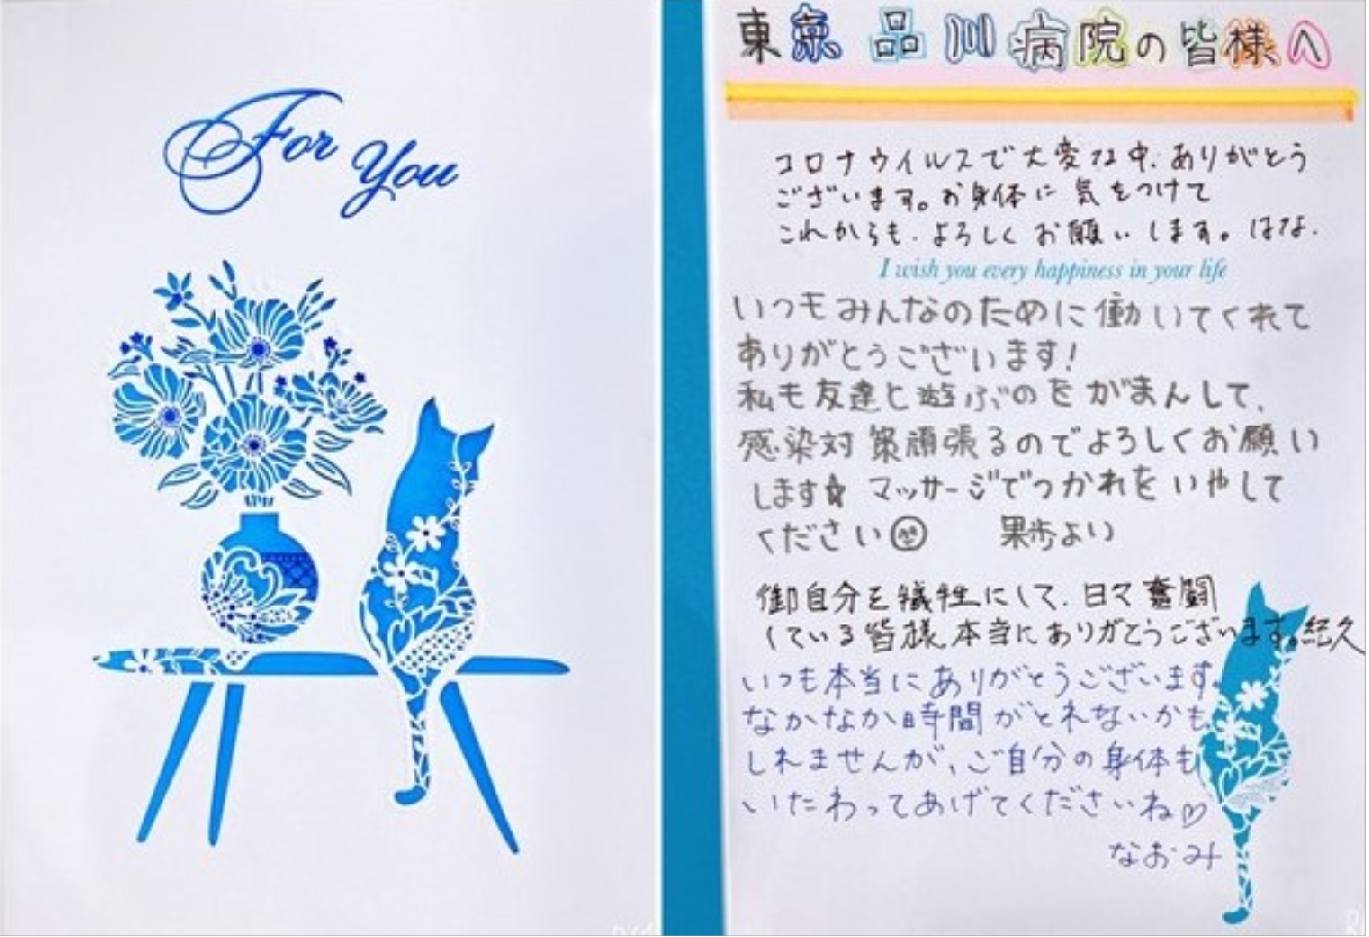 For You
東京 品川病院の皆様へ
コロナウイルスで大変な中、ありがとう
ございます。お身体に気をつけて
これからも、よろしくお願いします。はな.
I wish you every happiness in your life
いつもみんなのために働いてくれて
ありがとうございます!
私も友達と遊ぶのをがまんして、
感染対策頑張るのでよろしくお願い
します☆ マッサージでつかれをいやして
ください 果歩より
御自分を犠牲にして、日々奮闘
している皆様本当にありがとうございます。紀久
いつも本当にありがとうございます。
なかなか時間がとれないかも
しれませんが、ご自分の身体も
いたわってあげてくださいね♡
なおみ